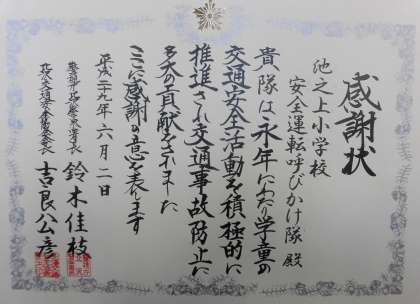 感謝状
池之上小学校
安全運転呼びかけ隊 殿
貴隊は永年にわたり学童の
交通安全活動を積極的に
推進され交通事故防止に
多大の貢献をされました
ここに感謝の意を表します
平成二十九年六月二日
鈴木佳枝
吉良公彦